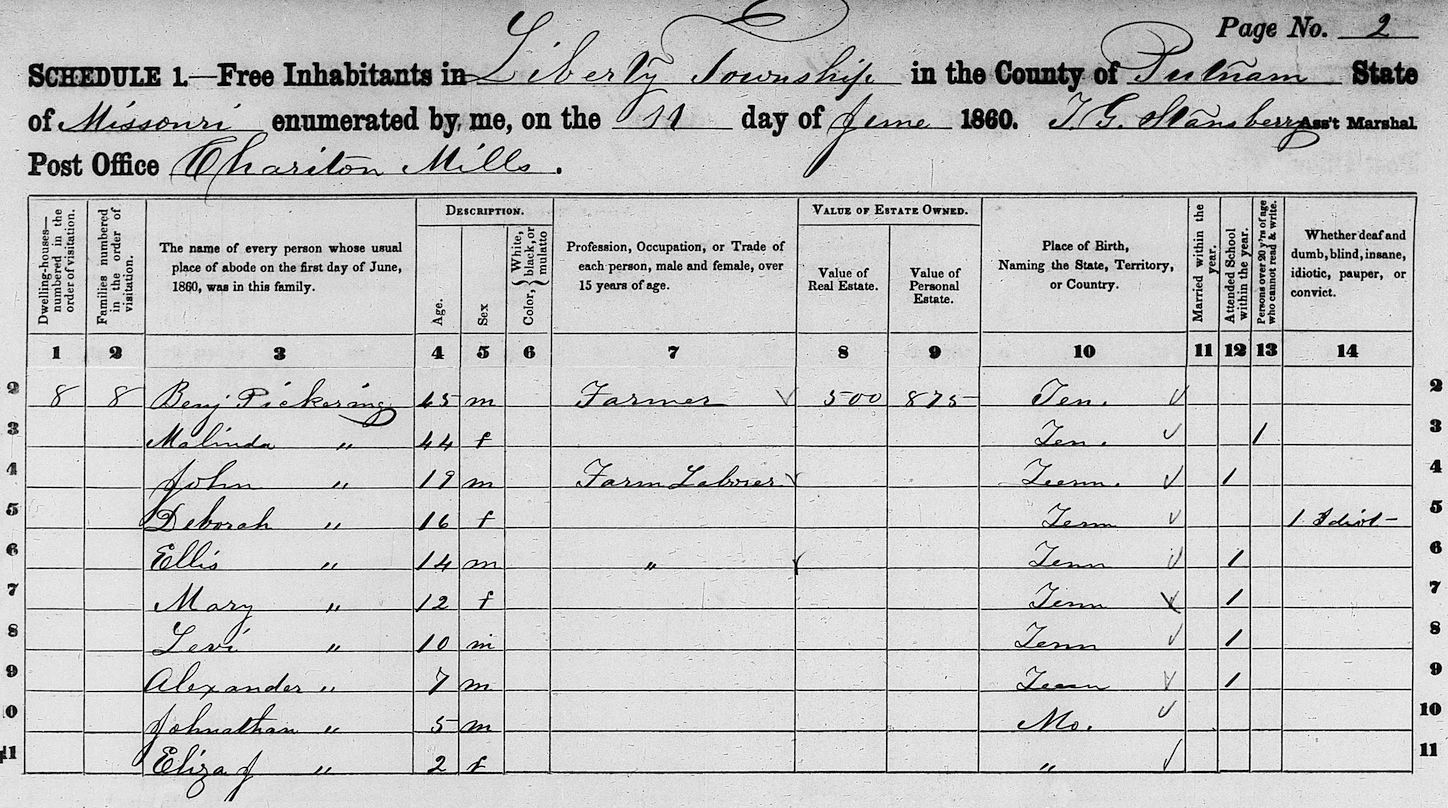 Page No. 2
SCHEDULE 1.—Free Inhabitants in Liberty Township in the County of Putnam State
of Missouri enumerated by me, on the 11 day of June 1860. T. G. Stansberry Ass't Marshal.
Post Office Chariton Mills.
Dwelling-houses—numbered in the order of visitation.
Families numbered in the order of visitation.
The name of every person whose usual place of abode on the first day of June, 1860, was in this family.
DESCRIPTION.
Age.
Sex
Color, { White, black, or mulatto
Profession, Occupation, or Trade of each person, male and female, over 15 years of age.
VALUE OF ESTATE OWNED.
Value of Real Estate.
Value of Personal Estate.
Place of Birth, Naming the State, Territory, or Country.
Married within the year.
Attended School within the year.
Persons over 20 y'rs of age who cannot read & write.
Whether deaf and dumb, blind, insane, idiotic, pauper, or convict.
1 2 3 4 5 6 7 8 9 10 11 12 13 14
2 8 8 Benj Pickering 45 m Farmer 500 875 Ten. 2
3 Malinda " 44 f Ten. 1 3
4 John " 19 m Farm Laborer Teenn. 1 4
5 Deborah " 16 f Tenn 1 Idiot 5
6 Ellis " 14 m " Tenn 1 6
7 Mary " 12 f Tenn 1 7
8 Levi " 10 m Tenn 1 8
9 Alexander " 7 m Tenn 1 9
10 Johnathan " 5 m Mo. 10
11 Eliza J " 2 f " 11